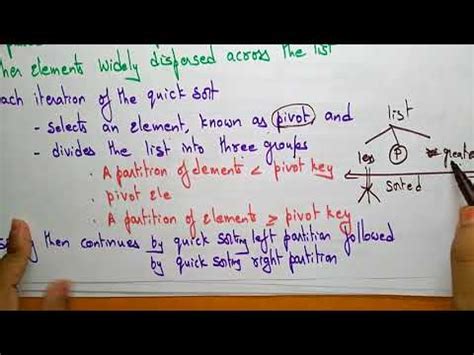 when elements widely dispersed across the list
each iteration of the quick sort
- selects an element, known as pivot, and
- divides the list into three groups
. A partition of elements < pivot key
. pivot ele
. A partition of elements ≥ pivot key
then continues by quick sorting left partition followed
by quick sorting right partition
list
less P greate
sorted